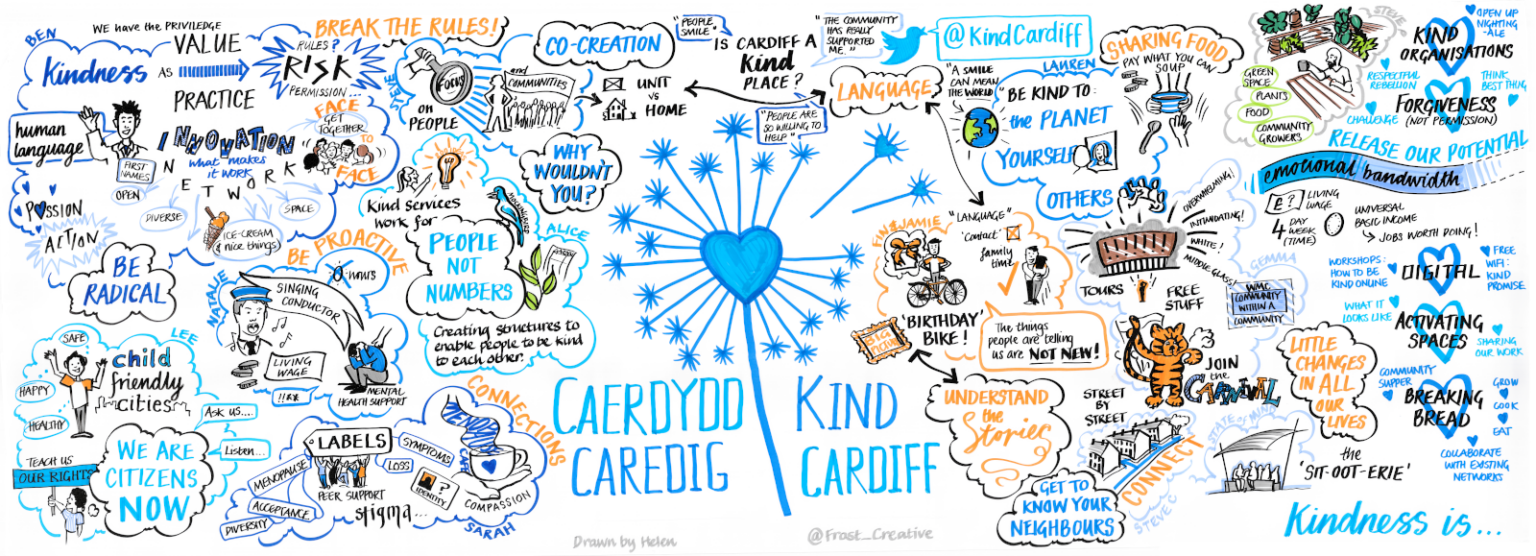 BEN
WE HAVE the PRIVILEDGE
Kindness AS
VALUE
PRACTICE
RULES?
RISK
PERMISSION...
human
language
FIRST
NAMES
INNOVATION
what makes
it work
NETWORK
OPEN
DIVERSE
SPACE
ICE-CREAM
(& nice things)
FACE
TO
FACE
GET
TOGETHER
PASSION
ACTION
BE
RADICAL
BREAK THE RULES!
STEVE
FOCUS
ON
PEOPLE
and
COMMUNITIES
CO-CREATION
UNIT
vs
HOME
up
Kind services
work for
PEOPLE
NOT
NUMBERS
MOCKINGBIRD
ALICE
WHY
WOULDN'T
YOU?
Creating structures to
enable people to be kind
to each other.
BE PROACTIVE
NATALIE
0 hours
SINGING
CONDUCTOR
LIVING
WAGE
!!**
MENTAL
HEALTH SUPPORT
LEE
SAFE
HAPPY
HEALTHY
child
friendly
cities
Ask us....
Listen...
TEACH US
OUR RIGHTS
WE ARE
CITIZENS
NOW
LABELS
MENOPAUSE
ACCEPTANCE
DIVERSITY
SYMPTOMS
LOSS
?
IDENTITY
PEER SUPPORT
stigma...
CONNECTIONS
MENOPAUSE
CAFE
COMPASSION
SARAH
"PEOPLE
SMILE"
IS CARDIFF A
Kind
PLACE?
"THE COMMUNITY
HAS REALLY
SUPPORTED
ME"
@KindCardiff
"PEOPLE ARE
SO WILLING TO
HELP"
LANGUAGE
CAERDYDD
CAREDIG
KIND
CARDIFF
Drawn by Helen
@Frost_Creative
"A SMILE
CAN MEAN
THE WORLD"
LAUREN
"BE KIND TO:
the PLANET
YOURSELF
OTHERS
SHARING FOOD
PAY WHAT YOU CAN
SOUP
FIN & JAMIE
"LANGUAGE"
'Contact'
family
time
'BIRTHDAY'
BIKE!
BIG
PICTURE
The things
people are telling
us are NOT NEW!
UNDERSTAND
the
Stories
TOURS
FREE
STUFF
OVERWHELMING!
INTIMIDATING!
WHITE!
MIDDLE CLASS!
GEMMA
WMC
COMMUNITY
WITHIN A
COMMUNITY
JOIN
the
CARNIVAL
STREET
BY
STREET
CONNECT
STEVE
GET TO
KNOW YOUR
NEIGHBOURS
STEVE
GREEN
SPACE
PLANTS
FOOD
COMMUNITY
GROWERS
KIND
ORGANISATIONS
OPEN UP
NIGHTING
-ALE
RESPECTFUL
REBELLION
THINK
BEST THING
FORGIVENESS
(NOT PERMISSION)
CHALLENGE
RELEASE OUR POTENTIAL
emotional bandwidth
£?
LIVING
WAGE
4 DAY
WEEK
(TIME)
UNIVERSAL
BASIC INCOME
JOBS WORTH DOING!
WORKSHOPS:
HOW TO BE
KIND ONLINE
DIGITAL
FREE
WIFI:
KIND
PROMISE
WHAT IT
LOOKS LIKE
ACTIVATING
SPACES
SHARING
OUR WORK
LITTLE
CHANGES
IN ALL
OUR
LIVES
COMMUNITY
SUPPER
BREAKING
BREAD
GROW
COOK
EAT
COLLABORATE
WITH EXISTING
NETWORKS
STATE OF MIND
the
'SIT-OOT-ERIE'
Kindness is...